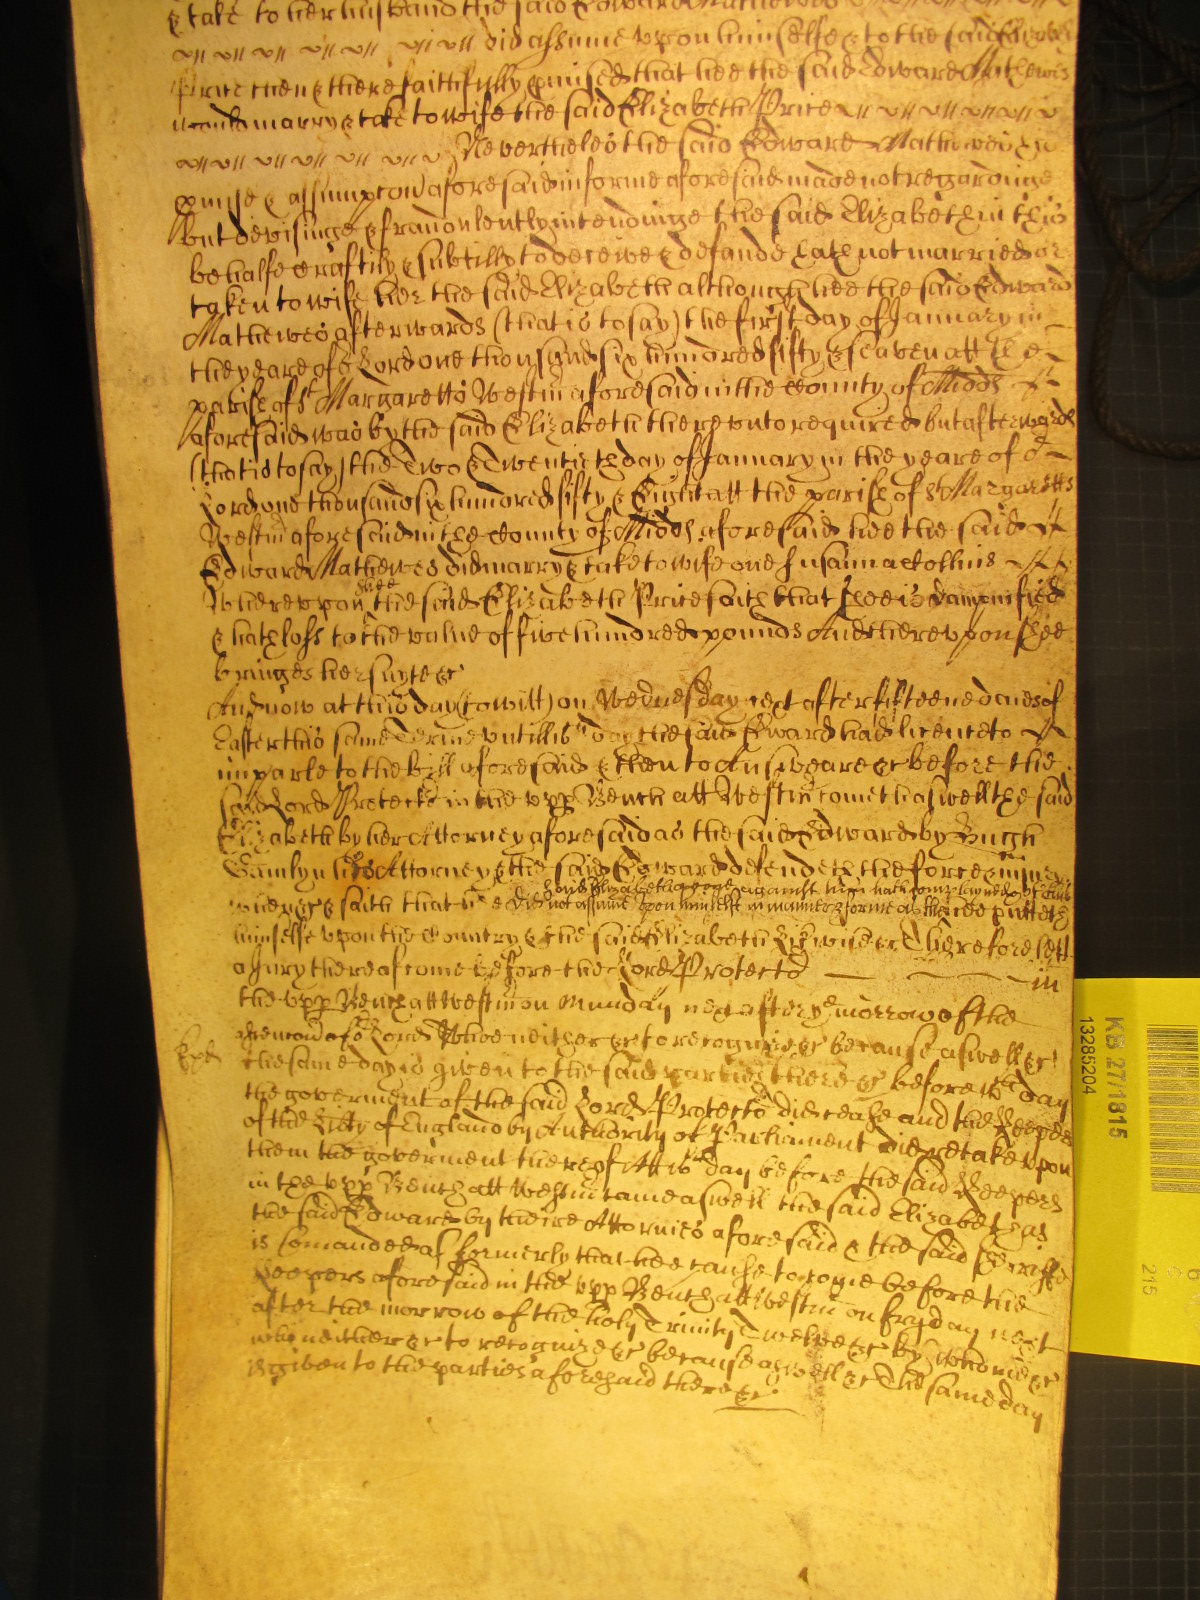 & take to her husband the said Edward Mathewes
did assume upon himselfe & to the said Elizabeth
Price then & there faithfully p'mised that hee the said Edward Mathewes
would marry & take to wife the said Elizabeth Price
Neverthelesse the said Edward Mathewes his
p'mise & assumpcon aforesaid in forme aforesaid made not regardinge
but devisinge & fraudulently intendinge the said Elizabeth in this
behalfe craftily & subtilly to deceive & defraude hath not married or
taken to wife her the said Elizabeth although hee the said Edward
Mathewes afterwards (that is to say) the first day of January in
the yeare of or Lord one thousand six hundred fifty & seaven att the
parish of St Margaretts Westm aforesaid in the County of Midds
aforesaid was by the said Elizabeth thereunto required but afterwards
(that is to say) the Two & Twentieth day of January in the yeare of or
Lord one thousand six hundred fifty & Eight att the parish of St Margaretts
Westm aforesaid in the County of Midds aforesaid hee the said
Edward Mathewes did marry & take to wife one Susanna Collins
Whereupon shee the said Elizabeth Price saith that shee is dampnified
& hath losse to the value of five hundred pounds And thereupon shee
bringes her suyte &c
And now at this day (to witt) on Wednesday next after fifteene daies of
Easter this same Terme untill wch day the said Edward had licence to
imparle to the bill aforesaid & then to Answeare &c before the
said Lord Protector in the upp Bench att Westm cometh aswell the said
Elizabeth by her Attorney aforesaid as the said Edward by Hugh
his Attorney & the said Edward defendeth the force & iniury
when &c & saith that hee did not assume upon himselfe in manner & forme as the
said Elizabeth above against him hath complained
hee putteth
himselfe upon the Country & the said Elizabeth likewise &c Therefore lett
a Jury thereof come before the Lord Protector in
the upp Bench att Westm on Munday next after ye morrow of the
Ascencon of or Lord Whoe neither &c to recognize &c because aswell &c
the same day is given to the said parties there &c before wch day
the goverment of the said Lord Protector did cease and the Keepers
of the Libty of England by Authority of Parliament did retake upon
them the goverment thereof Att wch day before the said Keepers
in the upp Bench att Westm came aswell the said Elizabeth as
the said Edward by theire Attornies aforesaid & the said Sheriffe
is Comanded as formerly that hee cause to come before the
Keepers aforesaid in the upp Bench att Westm on fryday next
after the morrow of the holy Trinity Twelve &c by whome &c
who neither &c to recognize &c because aswell &c The same day
is given to the parties aforesaid there &c
KB 27/1815
13285204
215